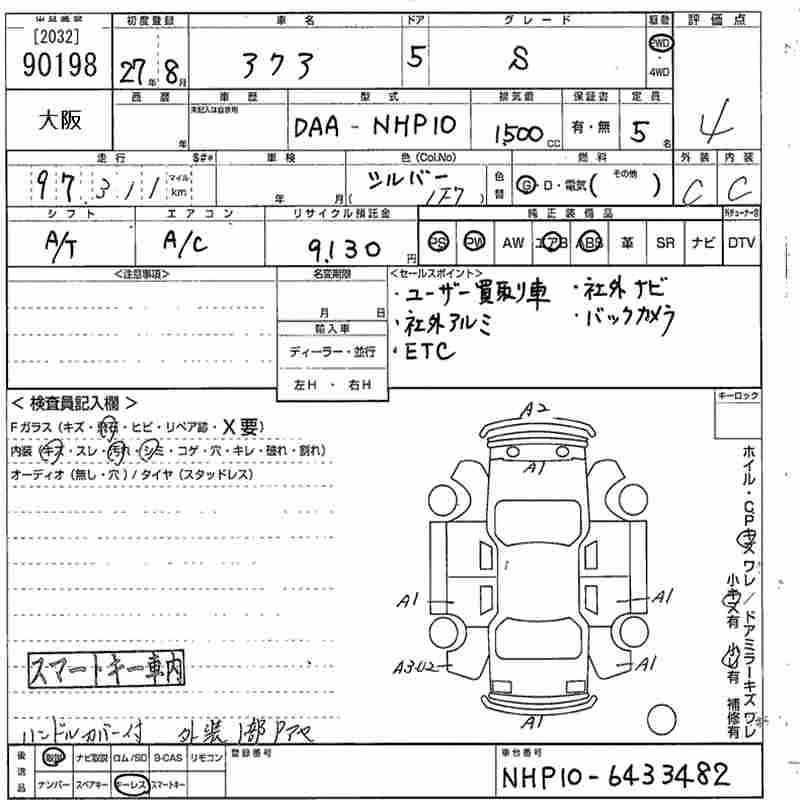 [2032]
90198
初度登録
27年 8月
車名
アクア
ドア
5
グレード
S
駆動
2WD
4WD
評価点
4
大阪
西暦
年
車歴
未記入は自家用
型式
DAA - NHP10
排気量
1500 cc
保証書
有・無
定員
5 名
走行
S##
97311
マイル
km
車検
年 月
色 (Col.No)
シルバー
( 1F7 )
色替
燃料
G・D・電気( その他 )
外装
C
内装
C
シフト
A/T
エアコン
A/C
リサイクル預託金
9,130 円
純正装備品
PS PW AW エアB ABS 革 SR ナビ DTV
<注意事項>
名変期限
月 日
輸入車
ディーラー・並行
左H ・ 右H
<セールスポイント>
・ユーザー買取り車
・社外ナビ
・社外アルミ
・バックカメラ
・ETC
キーロック
< 検査員記入欄 >
・ヒビ・リペア跡・X要)
内装 (キズ・スレ・汚れ・シミ・コゲ・穴・キレ・破れ・割れ)
オーディオ (無し・穴) / タイヤ (スタッドレス)
A2
A1
A1
A1
A3 U2
A1
A1
ホイル・CPキズ ワレ / ドアミラーキズ ワレ
小キズ有 小U有 補修有
スマートキー車内
ハンドルカバー付 外装1部Pアセ
後送品
取説 ナビ取説 ロム/SD B-CAS リモコン
ナンバー スペアキー キーレス スマートキー
登録番号
車台番号
NHP10-6433482